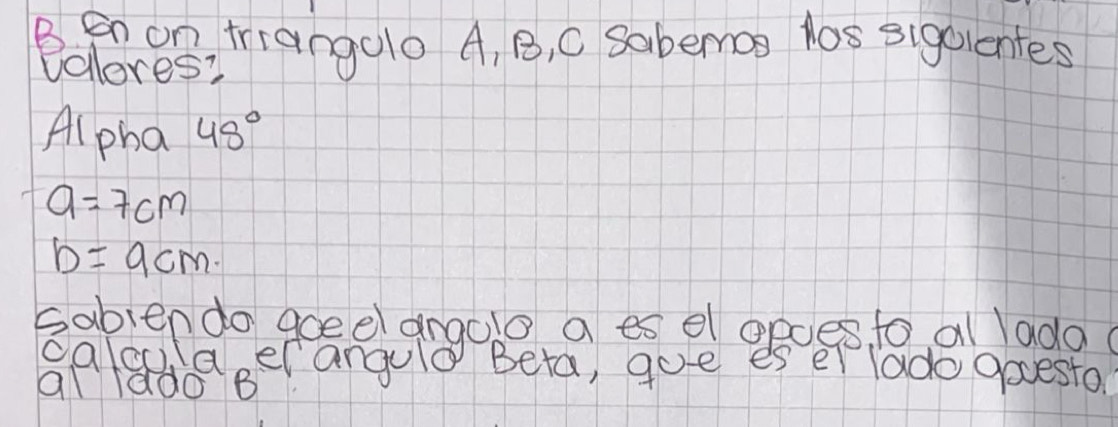 B. En un triangulo A, B, C sabemos los siguientes
valores:
Alpha 48°
a = 7cm
b = 9cm.
Sabiendo que el angulo a es el opuesto al lado
calcula el angulo Beta, que es el lado opuesto
al lado B